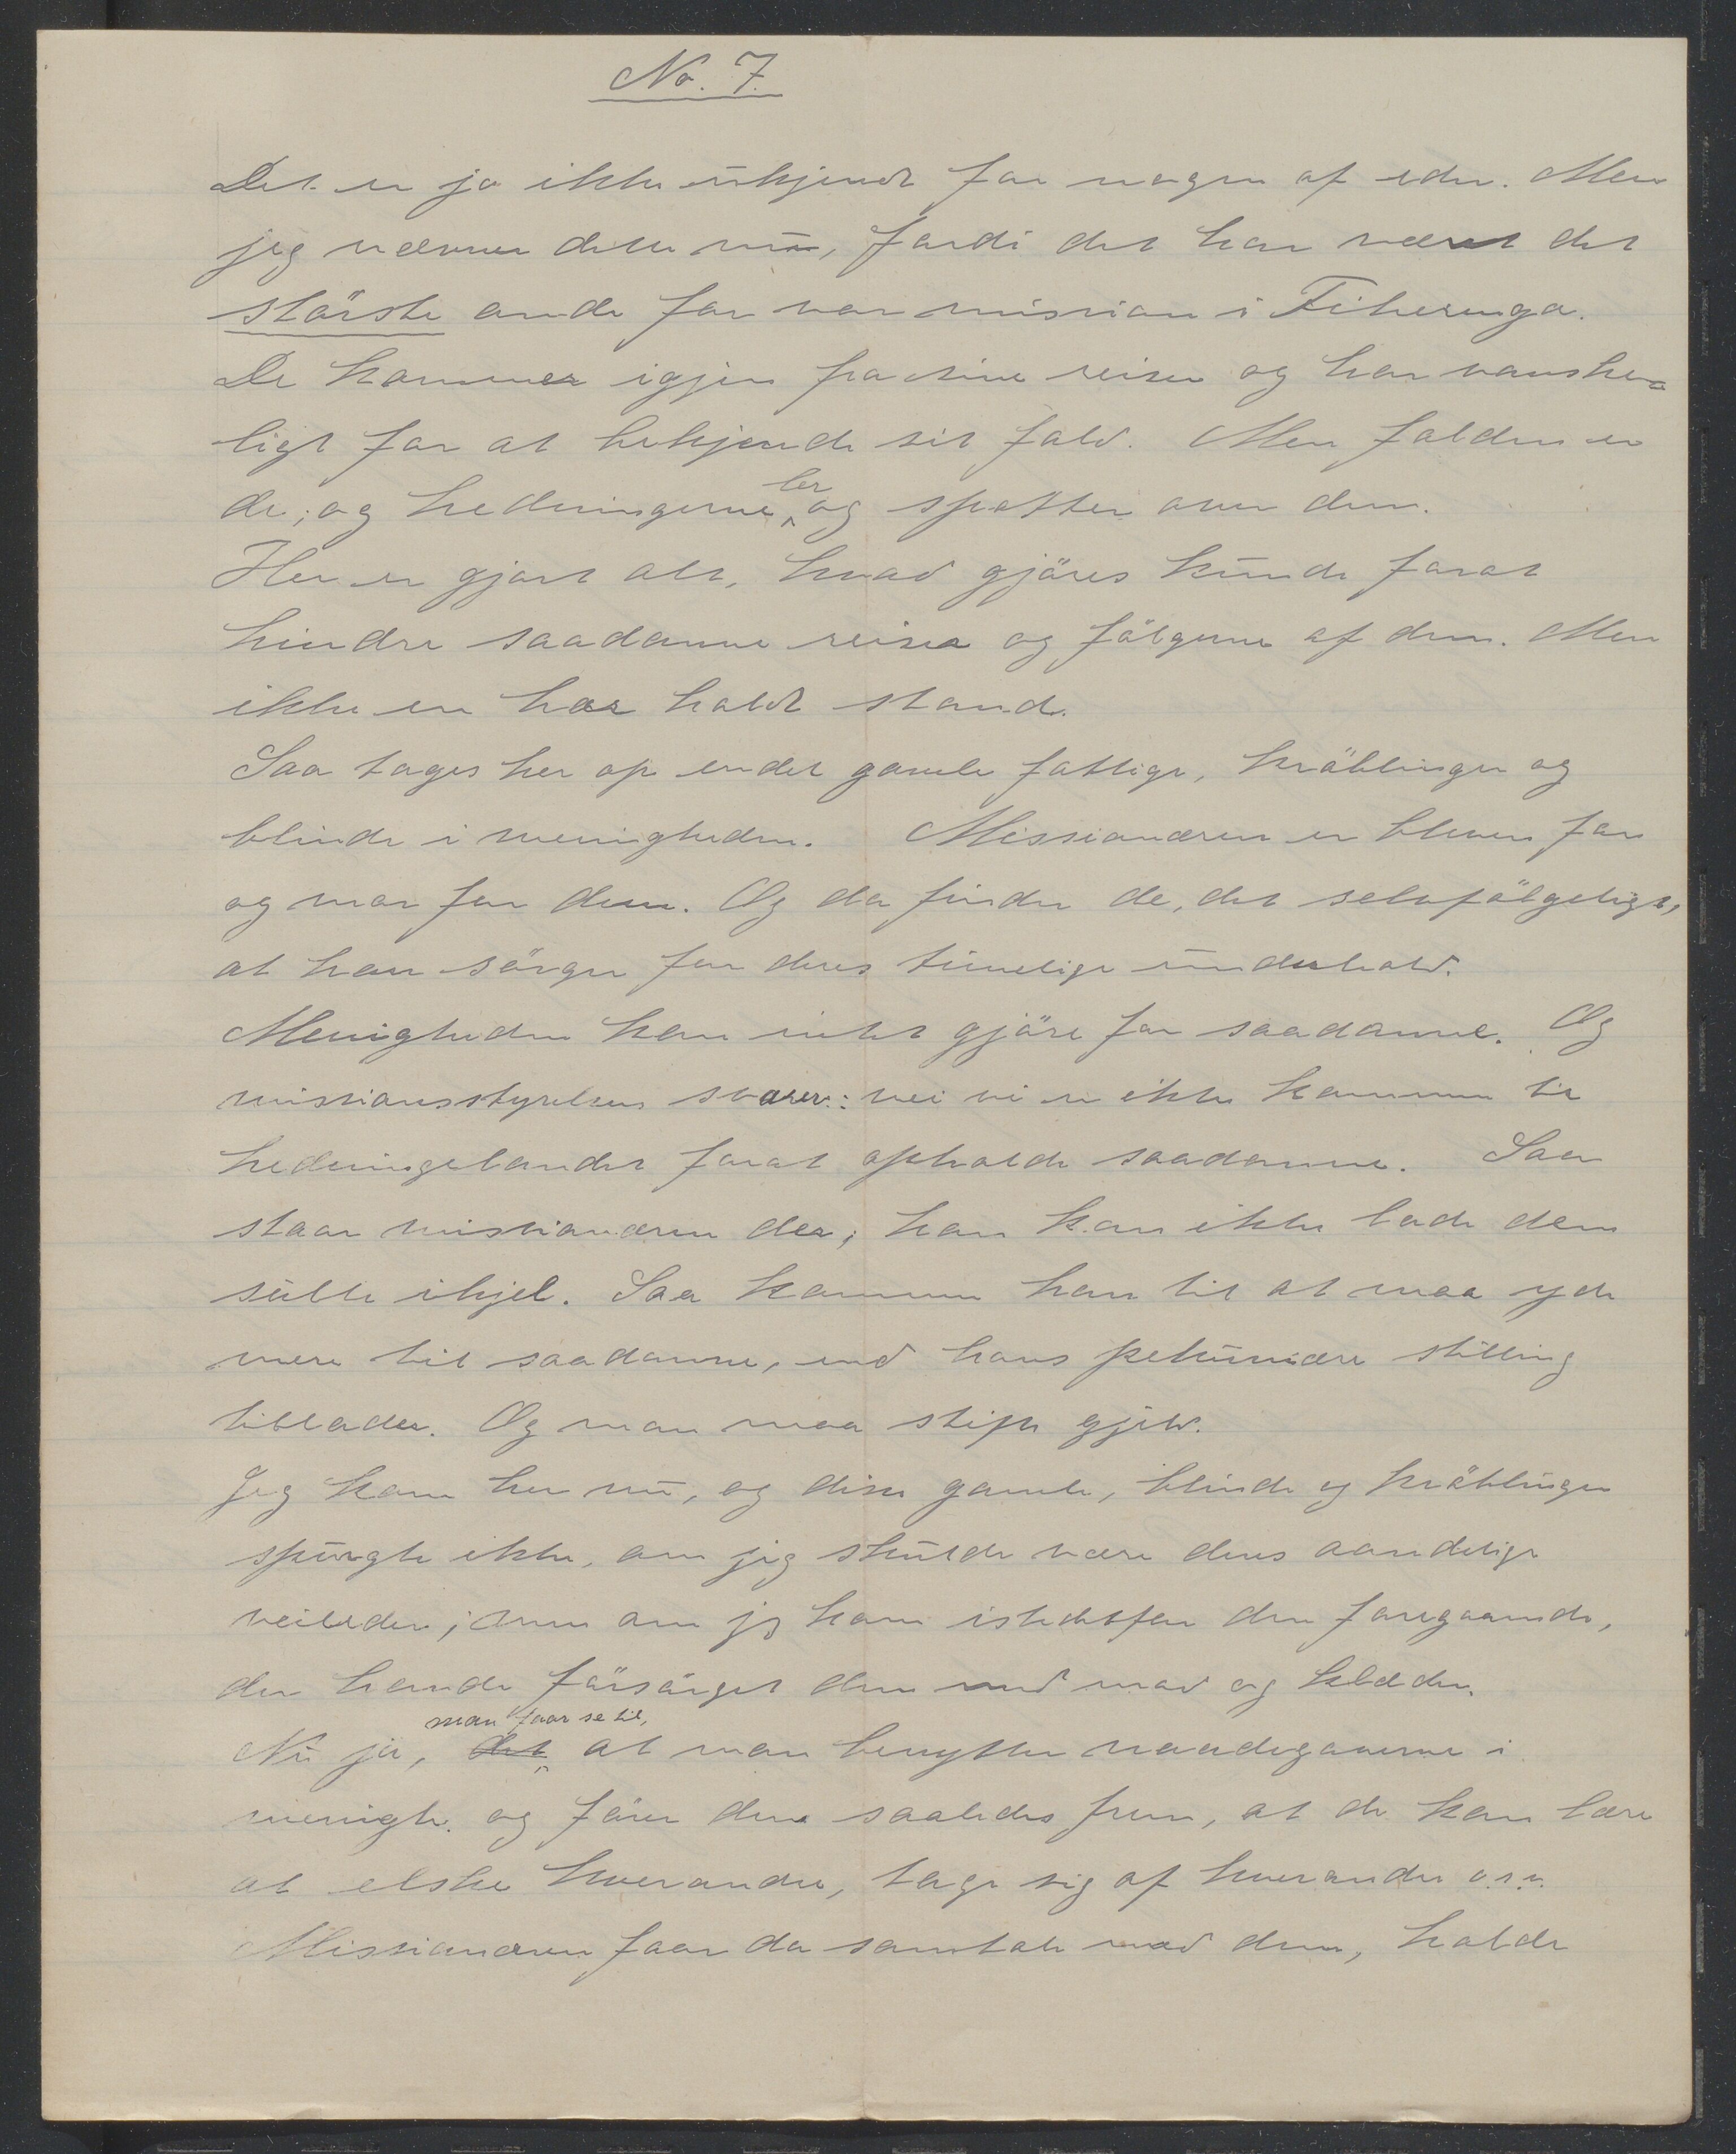 No. 7.
Det er jo ikke ukjendt for nogen af eder. Men
jeg nævner dette nu, fordi det har været det
störste onde for vor mission i Fiherenga.
De kommer igjen fra sine reiser og har vanske-
ligt for at bekjende sit fald. Men falden er
de; og hedningerne ler og spotter over dem.
Her er gjort alt, hvad gjöres kunde forat
hindre saadanne reiser og fölgerne af dem. Men
ikke en har holdt stand.
Saa tages her op endel gamle fattige, kröblinger og
blinde i menigheden. Missionæren er bleven far
og mor for dem. Og da finder de, det selvfölgeligt,
at han sörger for deres timelige underhold.
Menigheden kan intet gjöre for saadanne. Og
missionsstyrelsen svarer: nei vi er ikke kommen til
hedningelandet forat opholde saadanne. Saa
staar missionæren der; han kan ikke lade dem
sulte ihjel. Saa kommer han til at maa yde
mere til saadanne, end hans pekuniære stilling
tillader. Og man maa stifte gjeld.
Jeg kom her nu, og disse gamle, blinde og kröblinger
spurgte ikke, om jeg skulde være deres aandelige
veileder; men om jeg kom istedetfor den foregaaende,
der havde försörget dem med mad og klæder.
Nu ja, det man faar se til, at man benytter naadegaverne i
menigh. og förer dem saaledes frem, at de kan lære
at elske hverandre, tage sig af hverandre o.s.v.
Missionæren faar da samtale med dem, holde